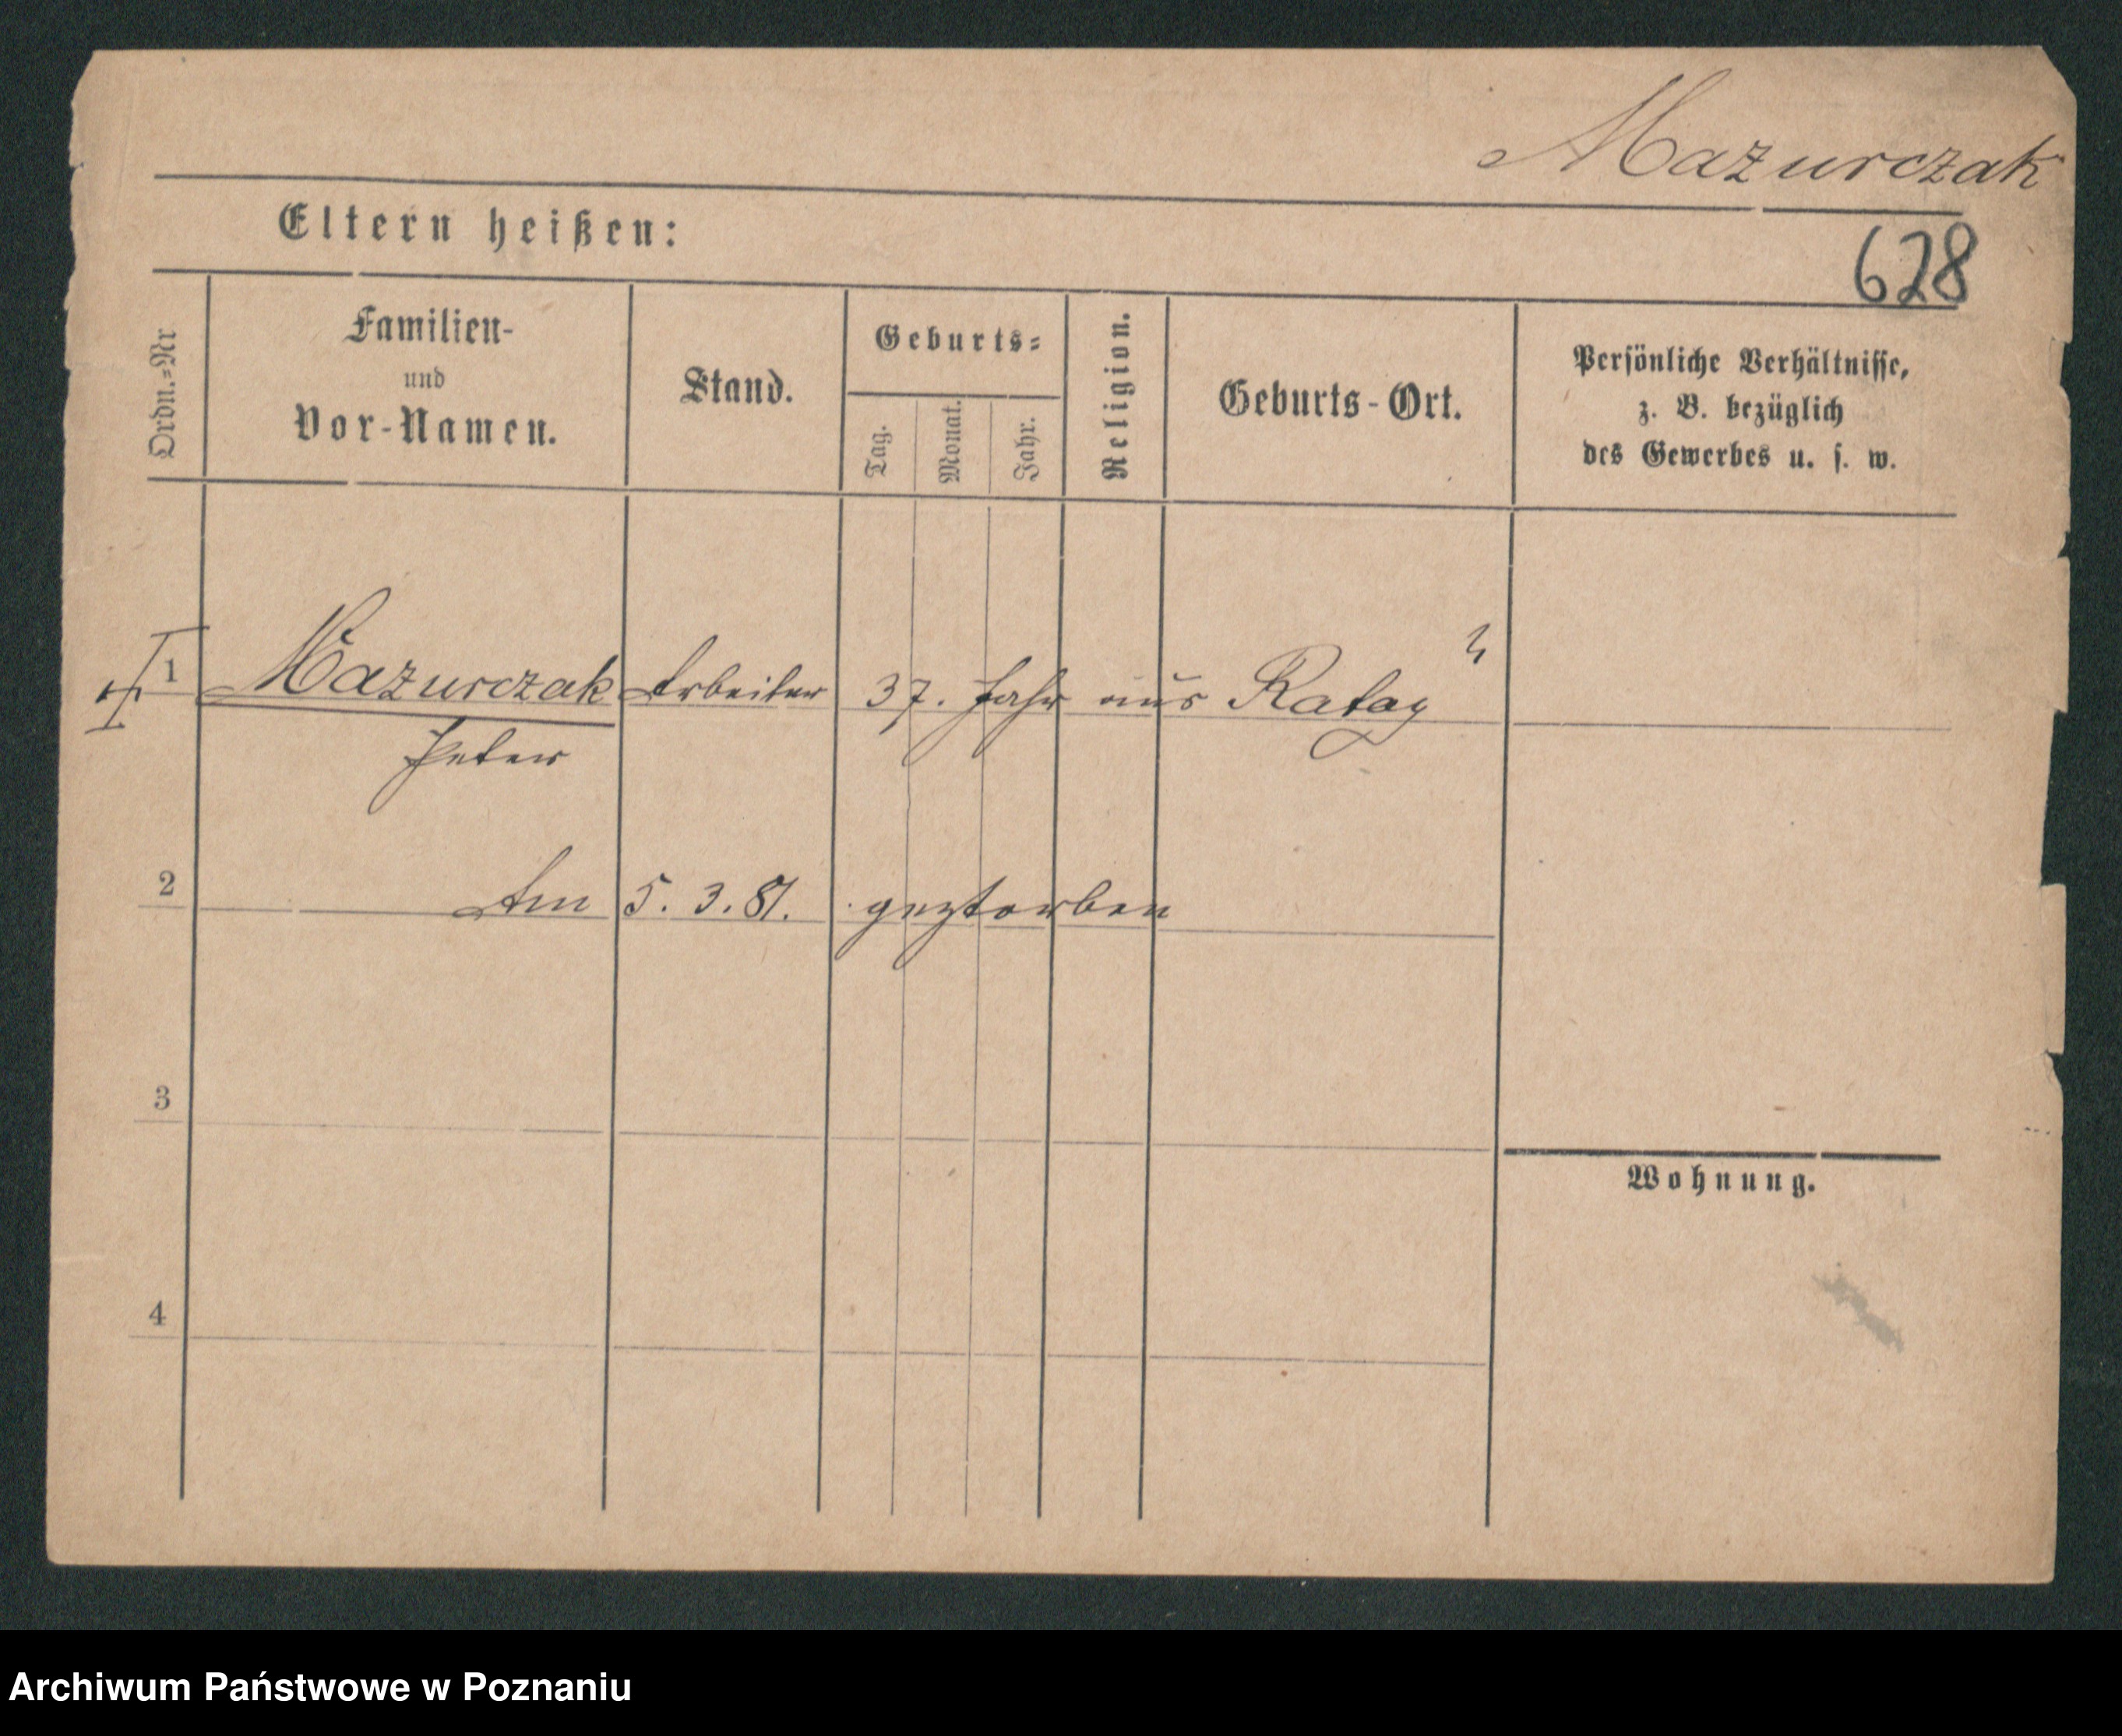 Mazurczak
Eltern heißen:
628
Ordn.=Nr
Familien-
und
Vor-Namen.
Stand.
Geburts=
Tag.
Monat.
Jahr.
Religion.
Geburts-Ort.
Persönliche Verhältnisse,
z. B. bezüglich
des Gewerbes u. s. w.
1 Mazurczak Arbeiter 37. Jahr aus Rataj
Peter
2 Am 5. 3. 81. gestorben
3
Wohnung.
4
Archiwum Państwowe w Poznaniu